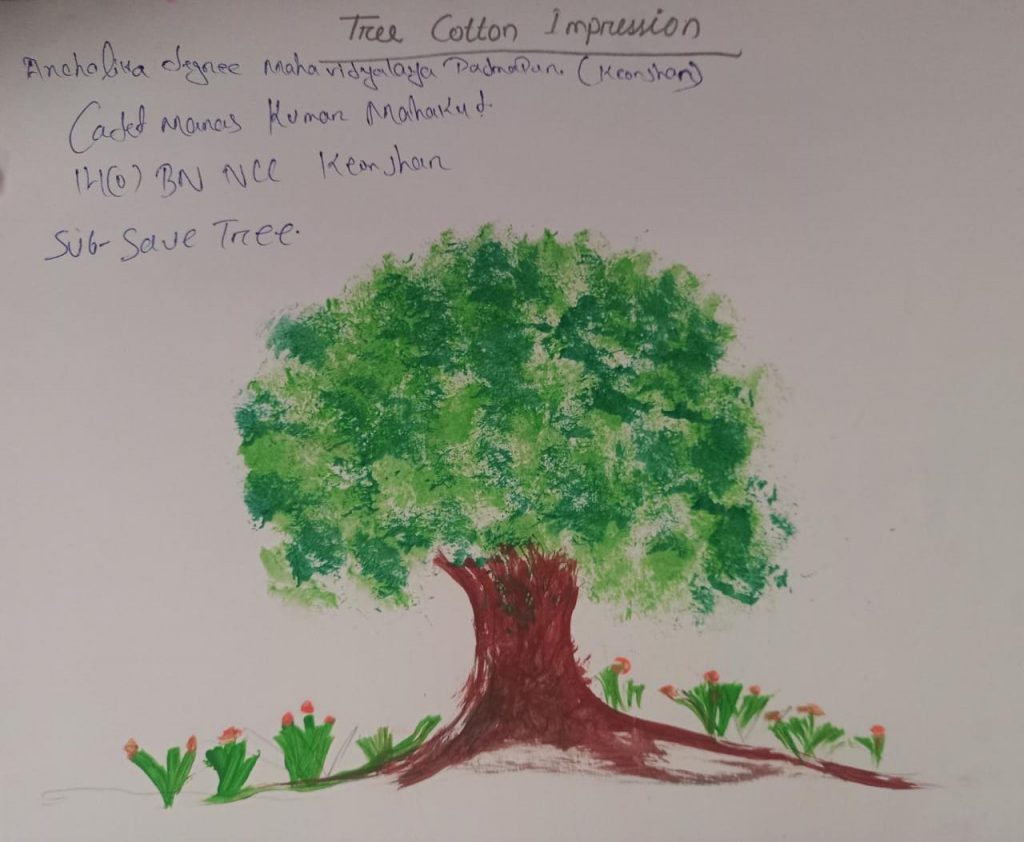 Tree Cotton Impression
Ancholika degree Mahavidyalaya Padmapur. (Keonjhar)
Cadet Manas Kumar Mahakud.
14(O) BN NCC Keonjhar
Sub- Save Tree.